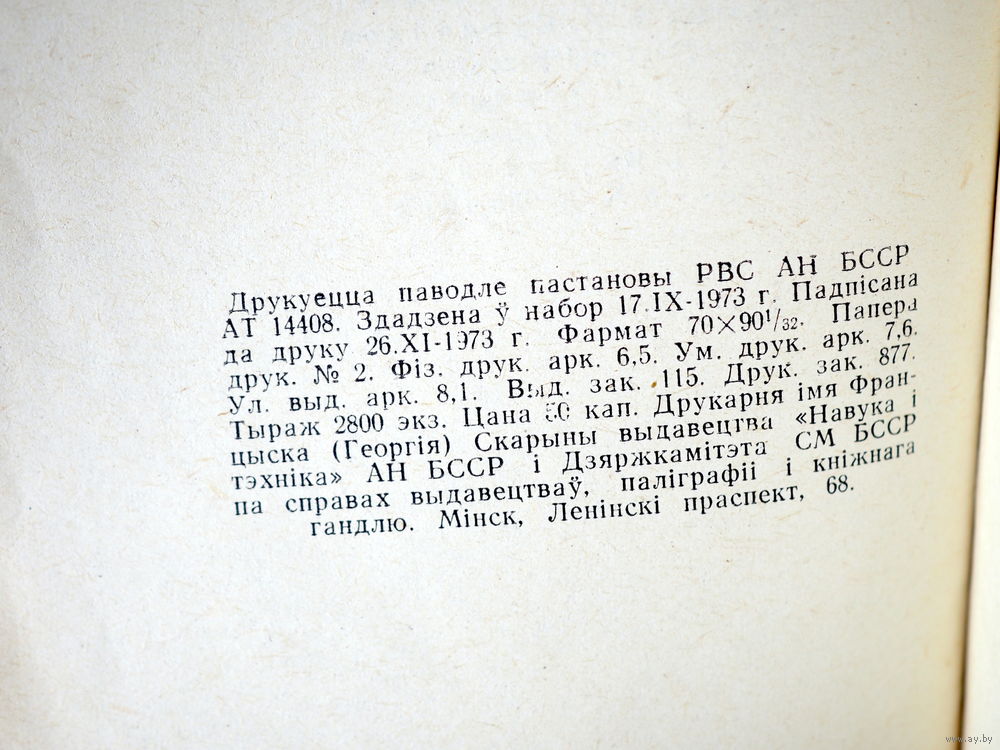 Друкуецца паводле пастановы РВС АН БССР
АТ 14408. Здадзена ў набор 17.IX-1973 г. Падпісана
да друку 26.XI-1973 г. Фармат 70×90¹/₃₂. Папера
друк. № 2. Фіз. друк. арк. 6,5. Ум. друк. арк. 7,6.
Ул. выд. арк. 8,1. Выд. зак. 115. Друк. зак. 877.
Тыраж 2800 экз. Цана 50 кап. Друкарня імя Фран-
цыска (Георгія) Скарыны выдавецтва «Навука і
тэхніка» АН БССР і Дзяржкамітэта СМ БССР
па справах выдавецтваў, паліграфіі і кніжнага
гандлю. Мінск, Ленінскі праспект, 68.
www.ay.by